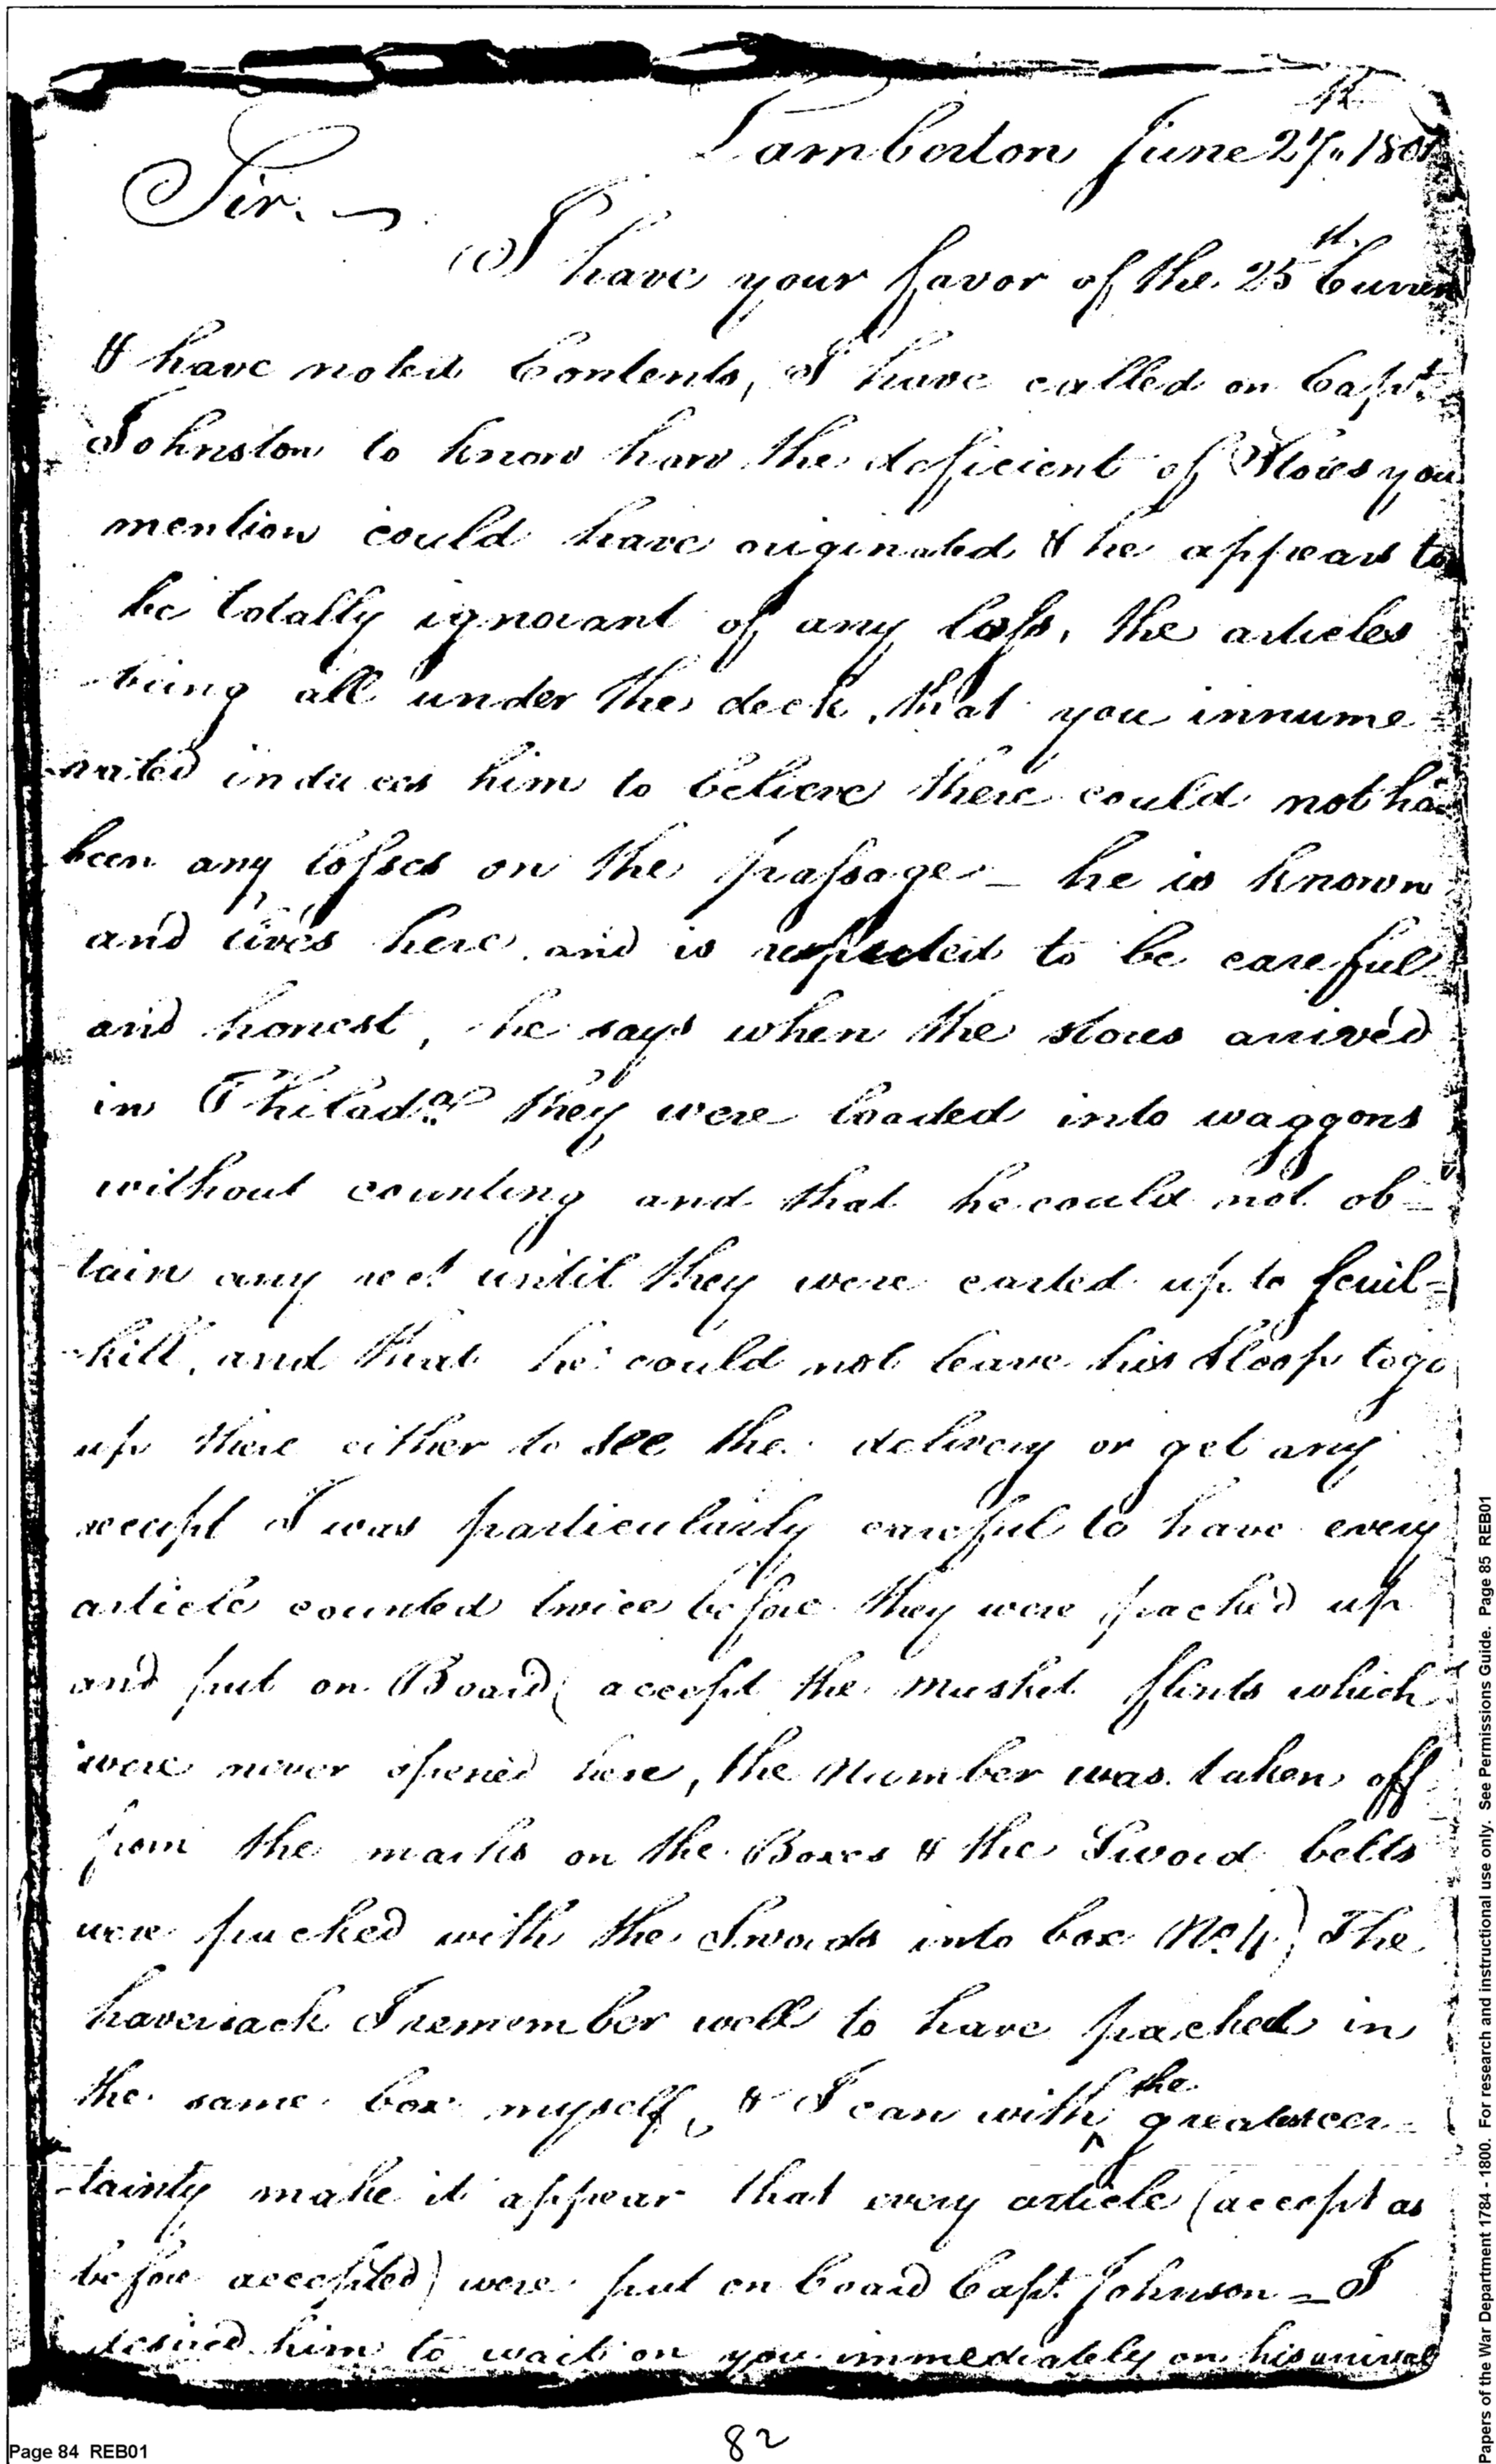 Lamberton June 27th 1801
Sir.
I have your favor of the 25th Curren
& have noted Contents, I have called on Capt.
Johnston to know how the deficient of Stores you
mention could have originated & he appears to
be totally ignorant of any loss, the articles
being all under the deck, that you innume
rated induces him to believe there could not ha
been any losses on the passage - he is known
and lives here, and is reputed to be careful
and honest, he says when the stores arrived
in Philada they were loaded into waggons
without counting and that he could not ob-
tain any rect until they were carted up to scuil-
-kill, and that he could not leave his Sloop to go
up there either to see the delivery or get any
receipt I was particularly careful to have every
article counted twice before they were packed up
and put on Board (accept the musket flints which
were never opened here, the Number was taken off
from the marks on the Boxes & the Sword belts
were packed with the Swords into box No. 4) The
haversack I remember well to have packed in
the same box myself, & I can with the greatest cer-
-tainty make it appear that every article (accept as
before accepted) were put on board Capt. Johnson - I
desired him to wait on you immediately on his arrival
82
Page 84 REB01
Papers of the War Department 1784 - 1800. For research and instructional use only. See Permissions Guide. Page 85 REB01